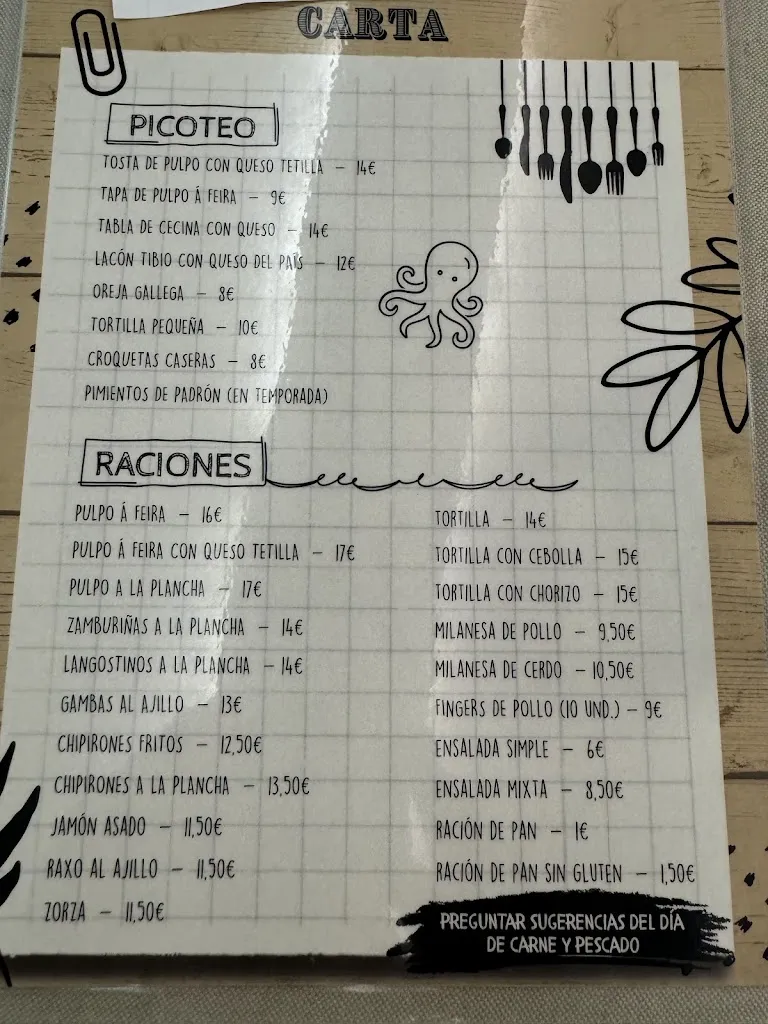 CARTA
PICOTEO
TOSTA DE PULPO CON QUESO TETILLA – 14€
TAPA DE PULPO Á FEIRA – 9€
TABLA DE CECINA CON QUESO – 14€
LACÓN TIBIO CON QUESO DEL PAÍS – 12€
OREJA GALLEGA – 8€
TORTILLA PEQUEÑA – 10€
CROQUETAS CASERAS – 8€
PIMIENTOS DE PADRÓN (EN TEMPORADA)
RACIONES
PULPO Á FEIRA – 16€
PULPO Á FEIRA CON QUESO TETILLA – 17€
PULPO A LA PLANCHA – 17€
ZAMBURIÑAS A LA PLANCHA – 14€
LANGOSTINOS A LA PLANCHA – 14€
GAMBAS AL AJILLO – 13€
CHIPIRONES FRITOS – 12,50€
CHIPIRONES A LA PLANCHA – 13,50€
JAMÓN ASADO – 11,50€
RAXO AL AJILLO – 11,50€
ZORZA – 11,50€
TORTILLA – 14€
TORTILLA CON CEBOLLA – 15€
TORTILLA CON CHORIZO – 15€
MILANESA DE POLLO – 9,50€
MILANESA DE CERDO – 10,50€
FINGERS DE POLLO (10 UND.) – 9€
ENSALADA SIMPLE – 6€
ENSALADA MIXTA – 8,50€
RACIÓN DE PAN – 1€
RACIÓN DE PAN SIN GLUTEN – 1,50€
PREGUNTAR SUGERENCIAS DEL DÍA
DE CARNE Y PESCADO